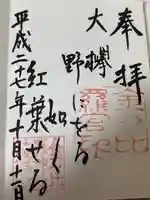 奉拝
大欅
野にをる
如く
紅葉せる
平成二十七年十月十一日